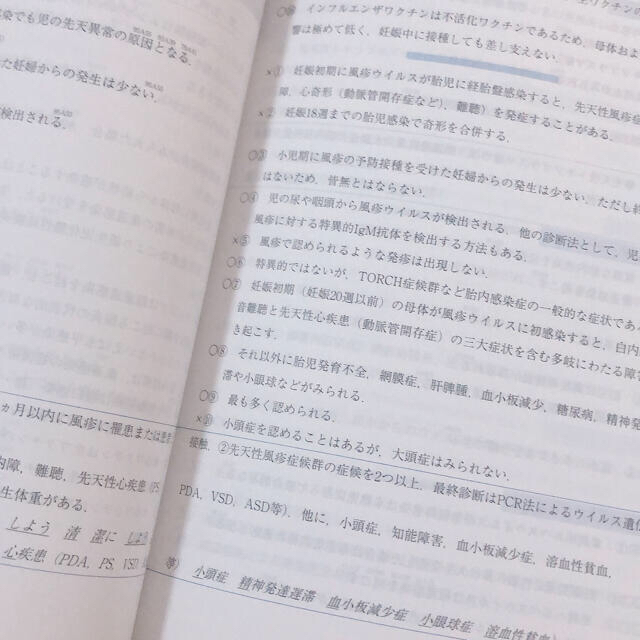 染でも児の先天異常の原因となる.
た妊婦からの発生は少ない.
検出される.
カ月以内に風疹に罹患または患者
内障, 難聴, 先天性心疾患 (PS
生体重がある.
しよう 清 潔に しよう
心疾患 (PDA, PS, VSD
インフルエンザワクチンは不活化ワクチンであるため, 母体およ
響は極めて低く, 妊娠中に接種しても差し支えない.
×① 妊娠初期に風疹ウイルスが胎児に経胎盤感染すると, 先天性風疹症
障, 心奇形 (動脈管開存症など), 難聴) を発症することがある.
×② 妊娠18週までの胎児感染で奇形を合併する.
○③ 小児期に風疹の予防接種を受けた妊婦からの発生は少ない. ただし終
はないため, 皆無とはならない.
○④ 児の尿や咽頭から風疹ウイルスが検出される. 他の診断法として, 児
風疹に対する特異的IgM抗体を検出する方法もある.
×⑤ 風疹で認められるような発疹は出現しない.
○⑥ 特異的ではないが, TORCH症候群など胎内感染症の一般的な症状であ
○⑦ 妊娠初期 (妊娠20週以前) の母体が風疹ウイルスに初感染すると, 白内
音難聴と先天性心疾患 (動脈管開存症) の三大症状を含む多岐にわたる障害
き起こす.
○⑧ それ以外に胎児発育不全, 網膜症, 肝脾腫, 血小板減少, 糖尿病, 精神発
滞や小眼球などがみられる.
○⑨ 最も多く認められる.
×⑩ 小頭症を認めることはあるが, 大頭症はみられない.
接触, ②先天性風疹症候群の症候を2つ以上, 最終診断はPCR法によるウイルス遺伝
PDA, VSD, ASD等). 他に, 小頭症, 知能障害, 血小板減少症, 溶血性貧血,
等) 小頭症 精神発達遅滞 血小板減少症 小眼球症 溶血性貧血